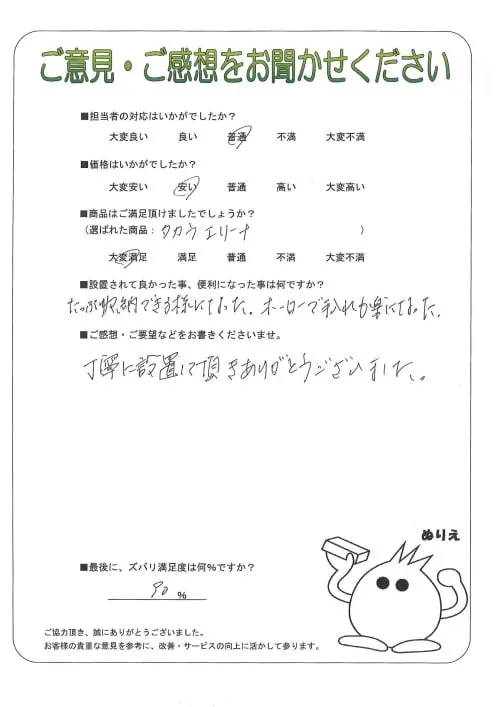 ご意見・ご感想をお聞かせください
■担当者の対応はいかがでしたか？
大変良い 良い 普通 不満 大変不満
■価格はいかがでしたか？
大変安い 安い 普通 高い 大変高い
■商品はご満足頂けましたでしょうか？
(選ばれた商品： タカラ エリーナ )
大変満足 満足 普通 不満 大変不満
■設置されて良かった事、便利になった事は何ですか？
たっぷり収納できる様になった。ホーローで手入れが楽になった。
■ご感想・ご要望などをお書きくださいませ。
丁寧に設置して頂きありがとうございました。
ぬりえ
■最後に、ズバリ満足度は何%ですか？
90 %
ご協力頂き、誠にありがとうございました。
お客様の貴重な意見を参考に、改善・サービスの向上に活かして参ります。